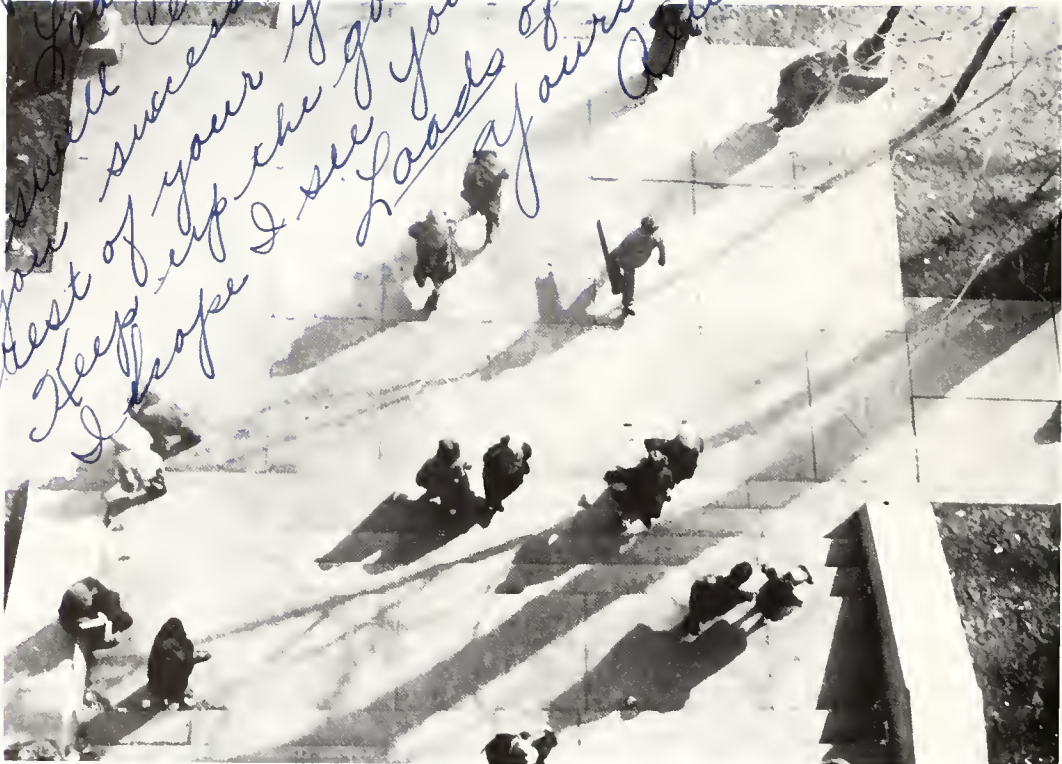 Lo
you
success
rest of your y
Keep up the go
I hope I see you
Loads of
yours